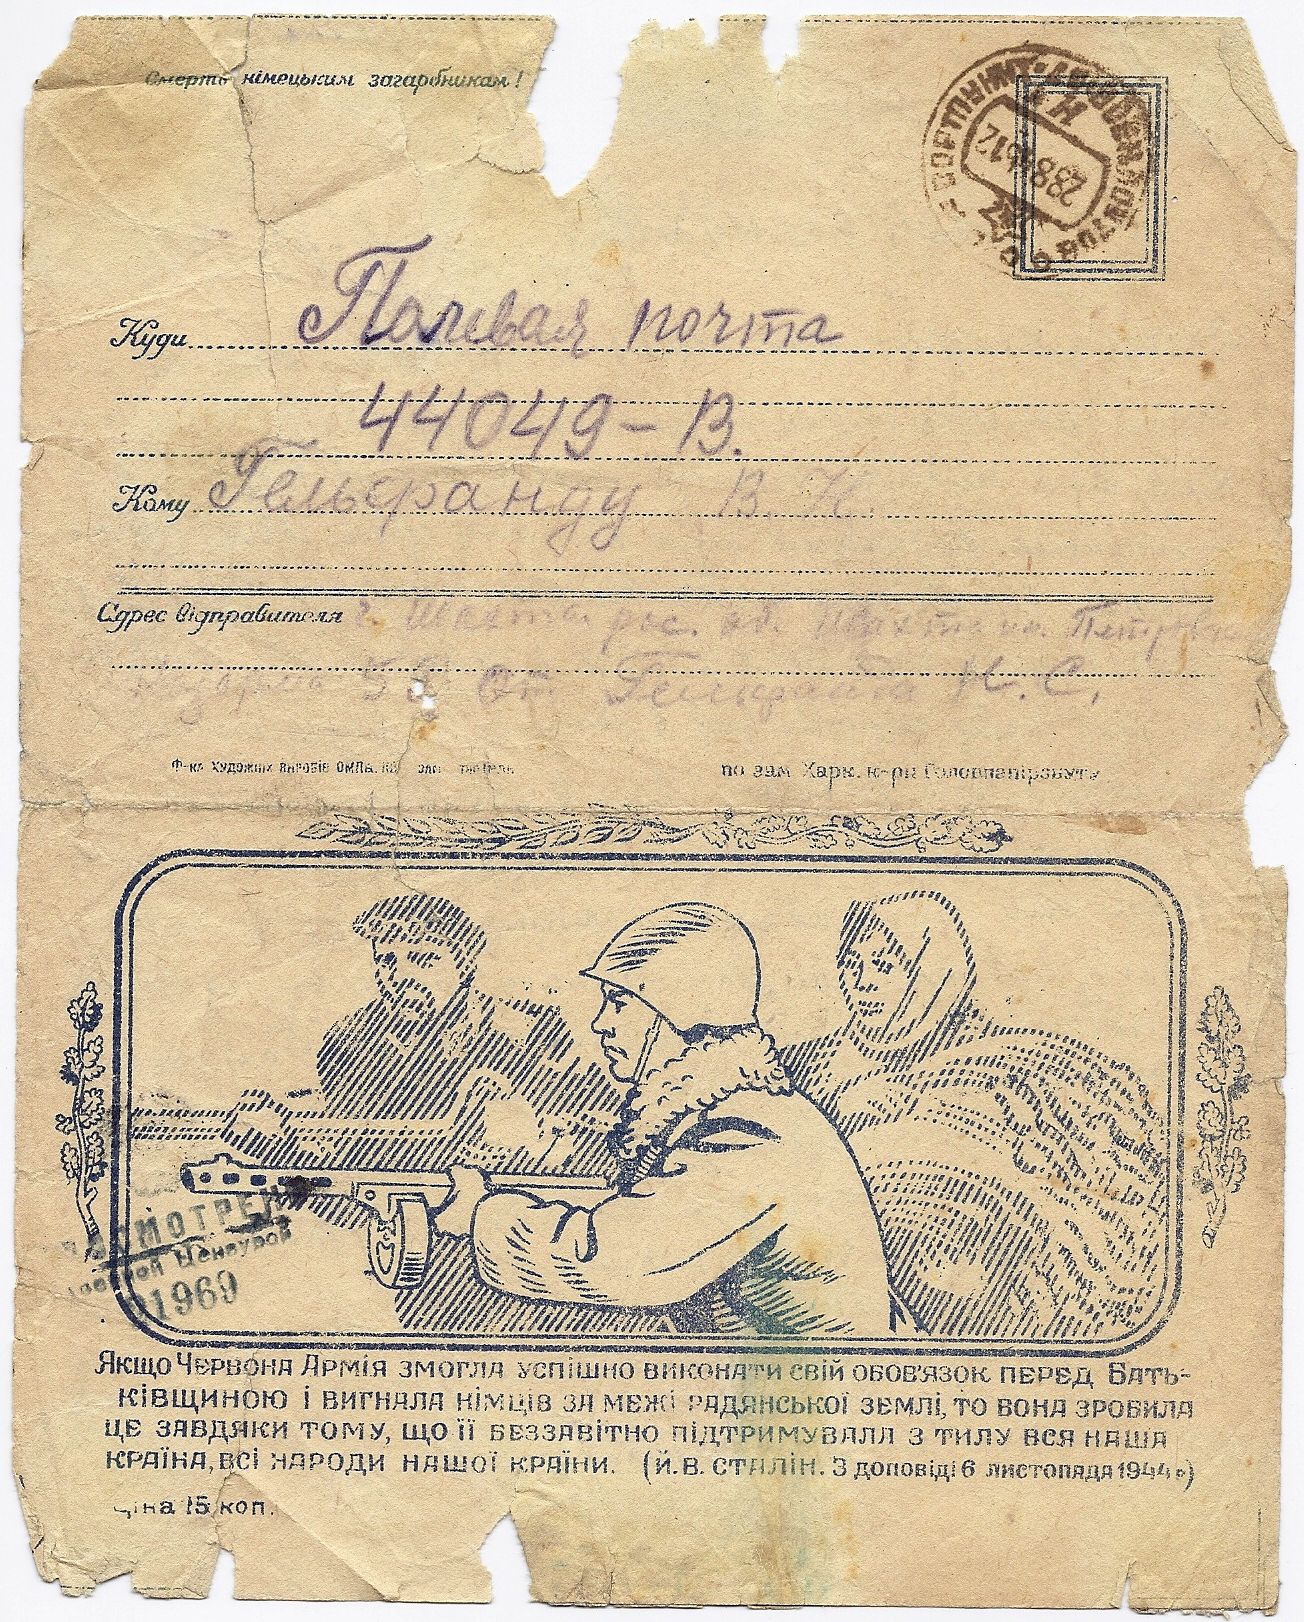 Смерть німецьким загарбникам!
Куди Полевая почта
44049-В.
Кому Гельфанду В. Н.
Адрес відправителя г. Шахты рос. об. Шахта им.
От Гельфанда Н. С.
Ф-ка Художніх виробів
по зам Харк. к-ри Головпапірзбуту
ПРОСМОТРЕНО
Военной Цензурой
01969
Якщо Червона Армія змогла успішно виконати свій обов'язок перед Бать-
ківщиною і вигнала німців за межі радянської землі, то вона зробила
це завдяки тому, що її беззавітно підтримувала з тилу вся наша
країна, всі народи нашої країни. (Й. В. Сталін. З доповіді 6 листопада 1944 р)
Ціна 15 коп.